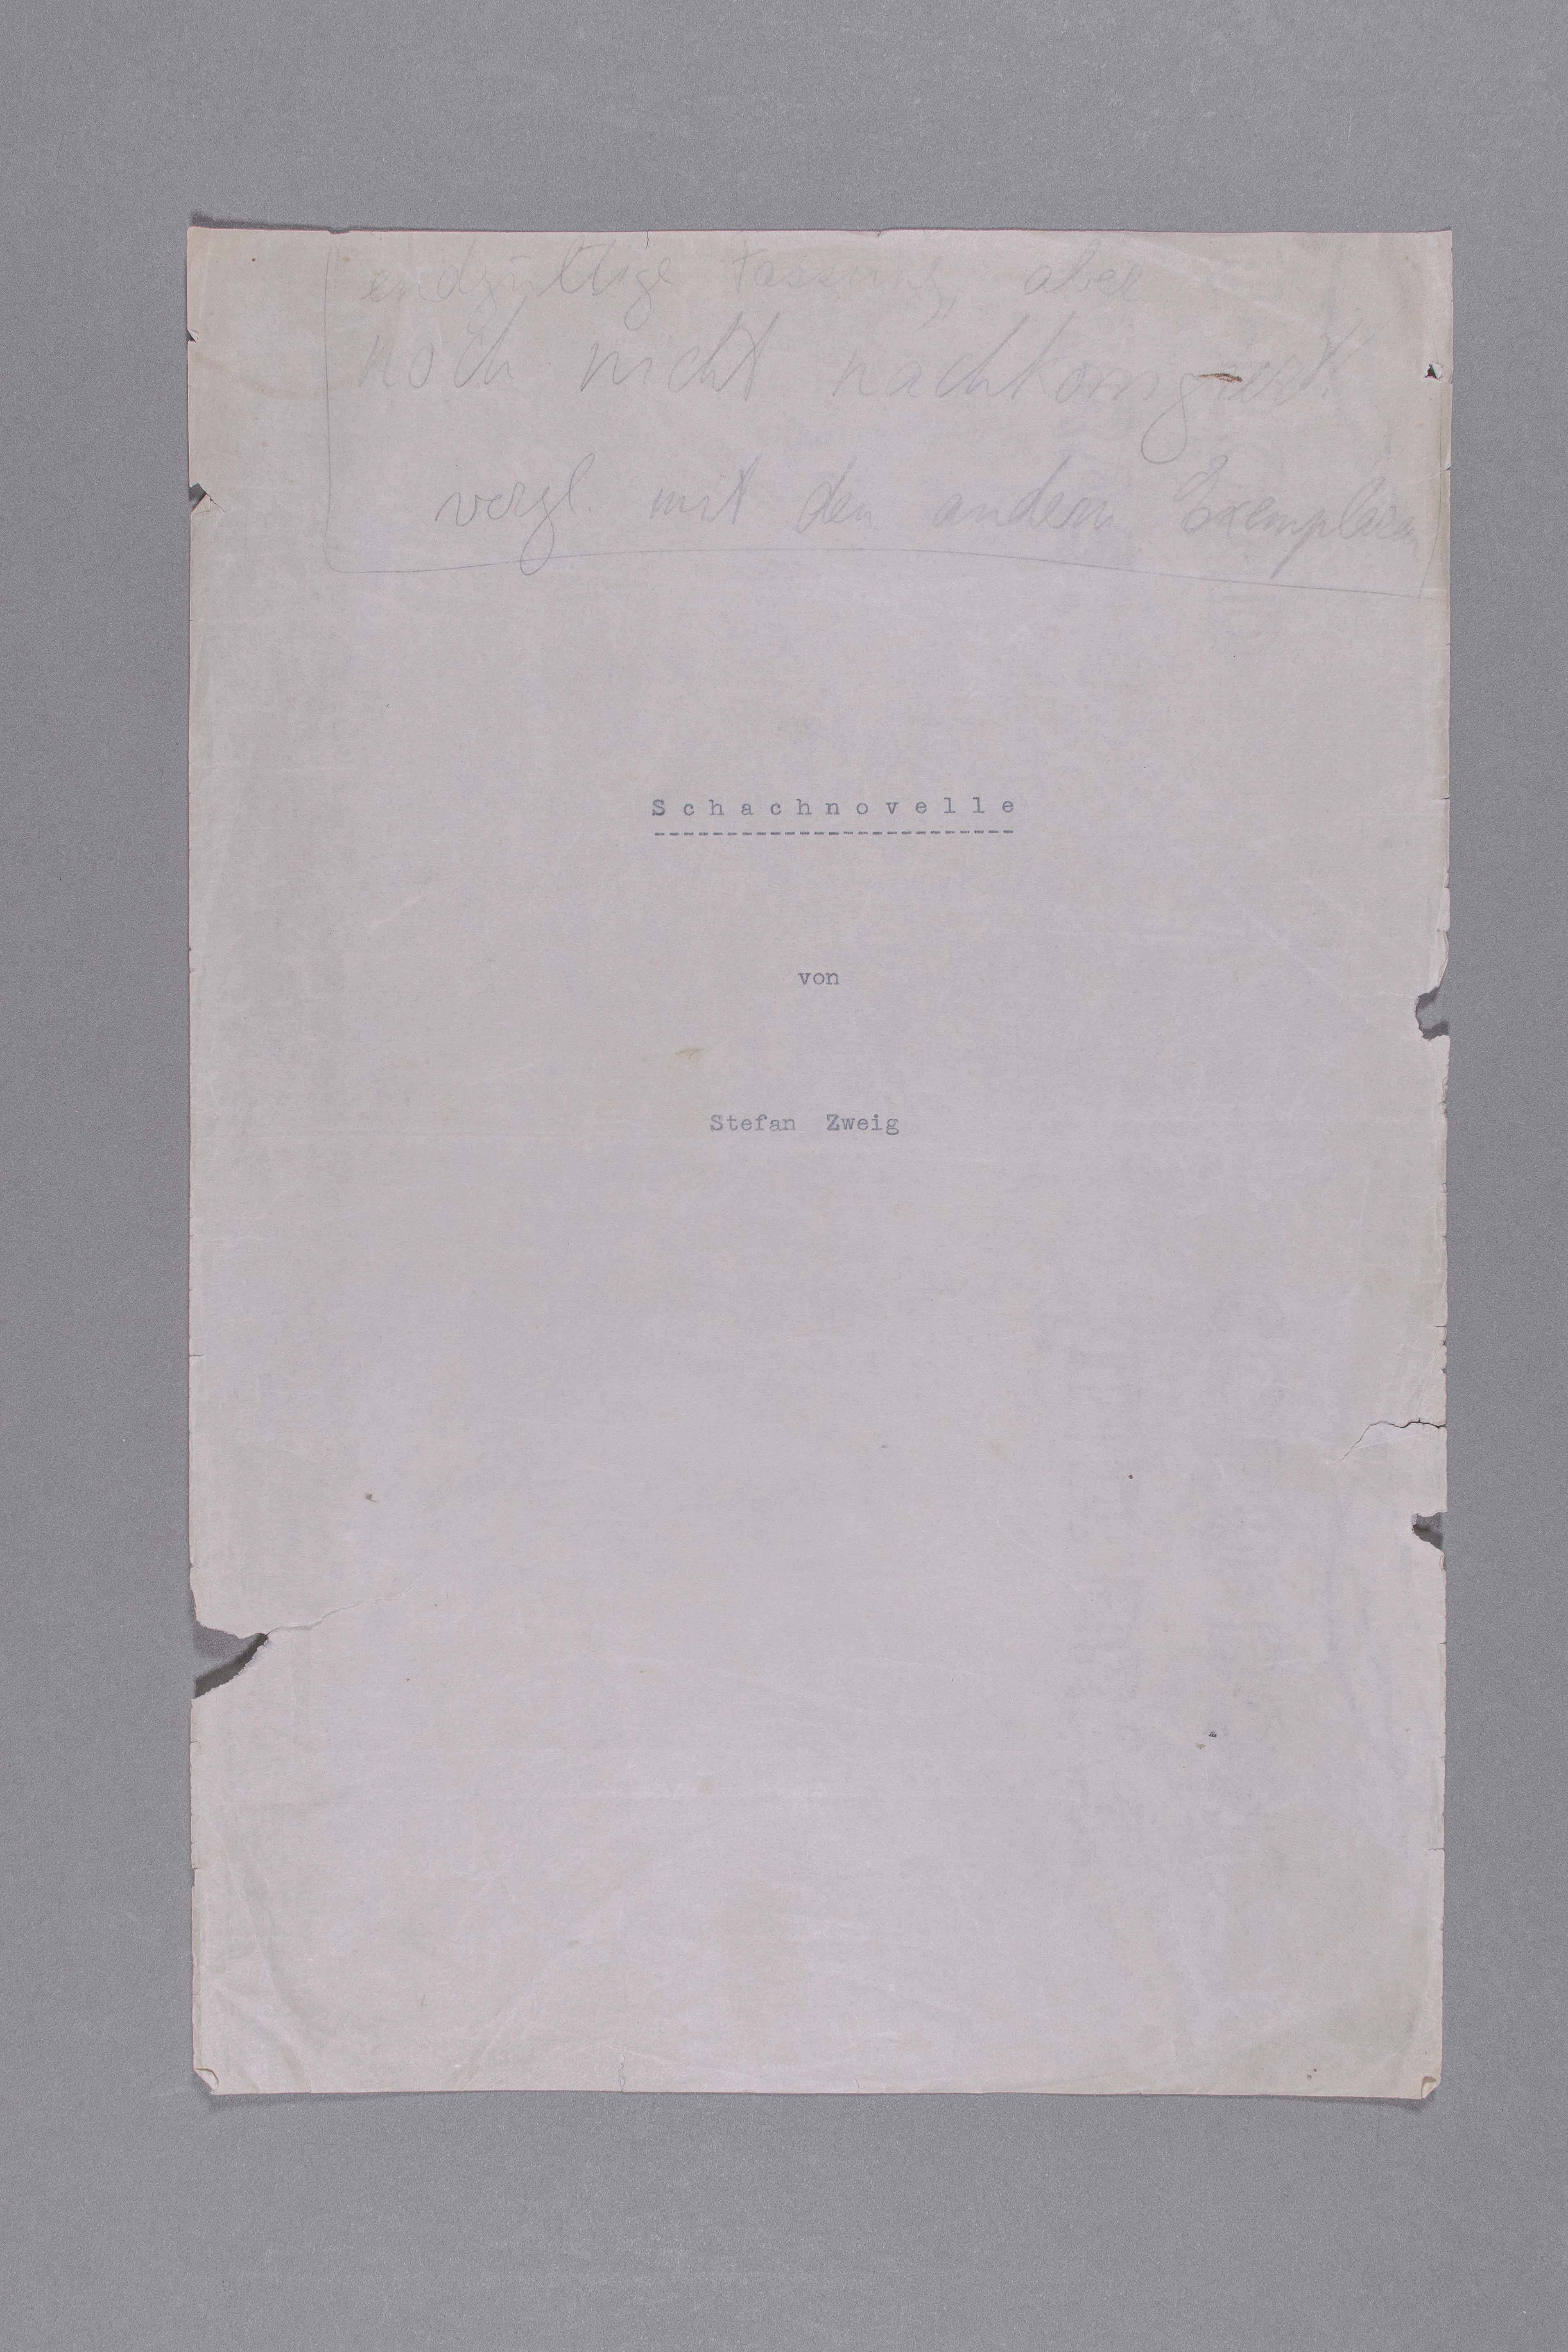 endgültige Fassung, aber
noch nicht nachkorrigiert
vergl. mit den andern Exemplaren
Schachnovelle
von
Stefan Zweig